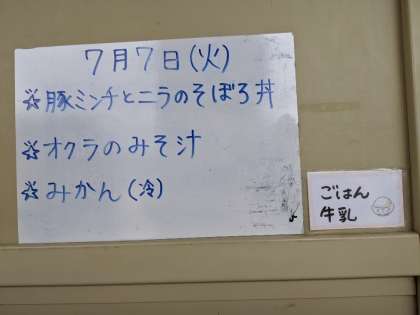 7月7日(火)
☆豚ミンチとニラのそぼろ丼
☆オクラのみそ汁
☆みかん(冷)
ごはん
牛乳